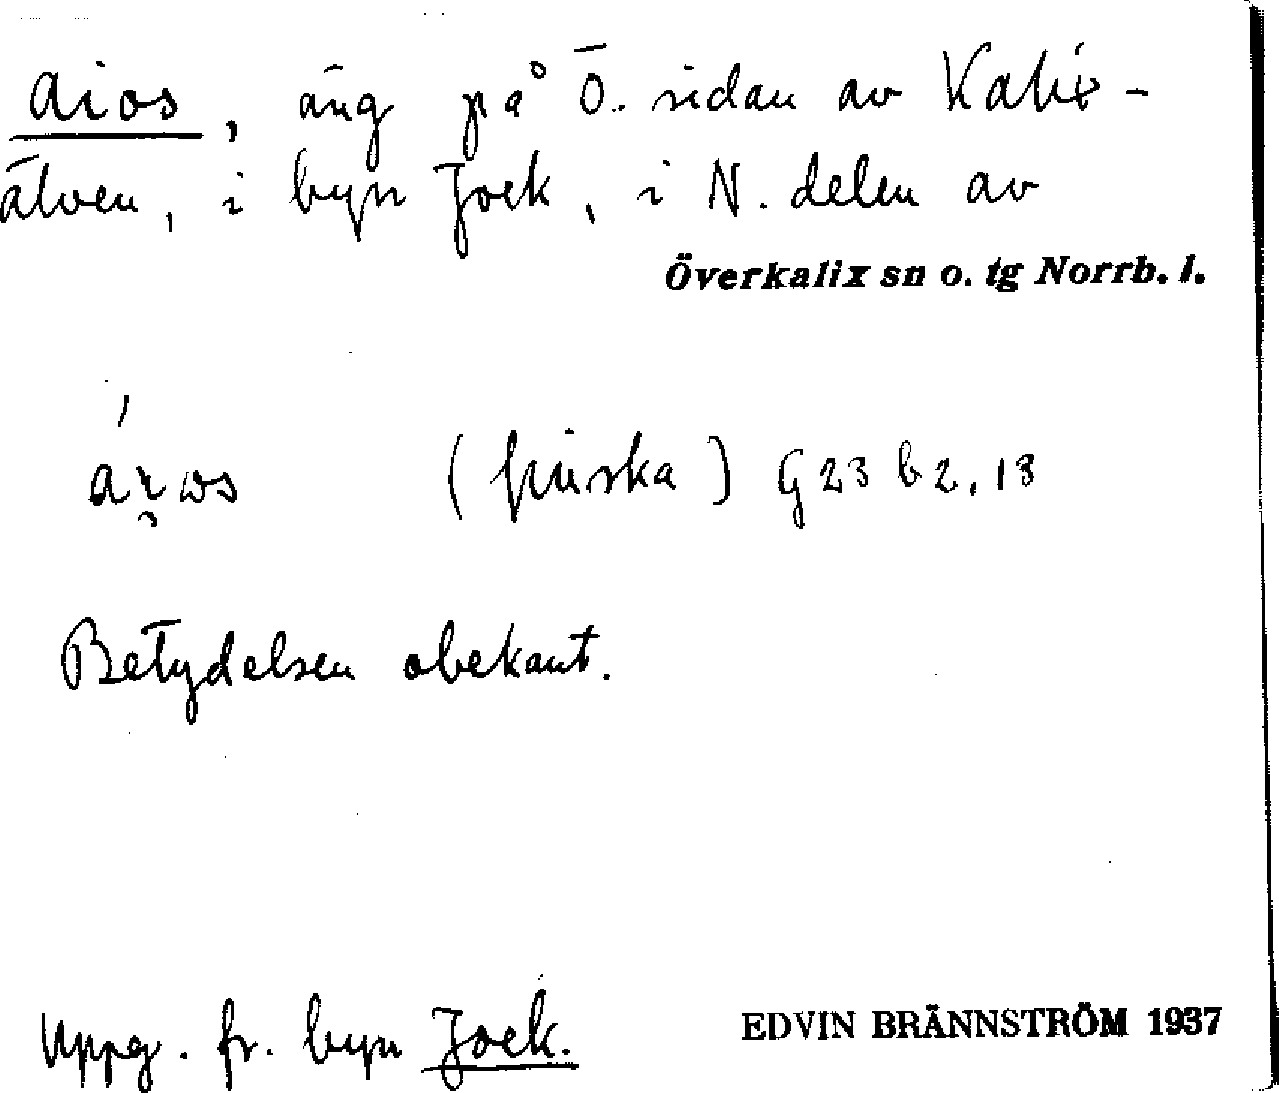 aios, äng på Ö. sidan av Kalix-
älven, i byn Jock, i N. delen av
Överkalix sn o. tg Norrb. l.
(finska) G 23 b 2, 13
Betydelsen obekant.
Uppg. fr. byn Jock.
EDVIN BRÄNNSTRÖM 1937